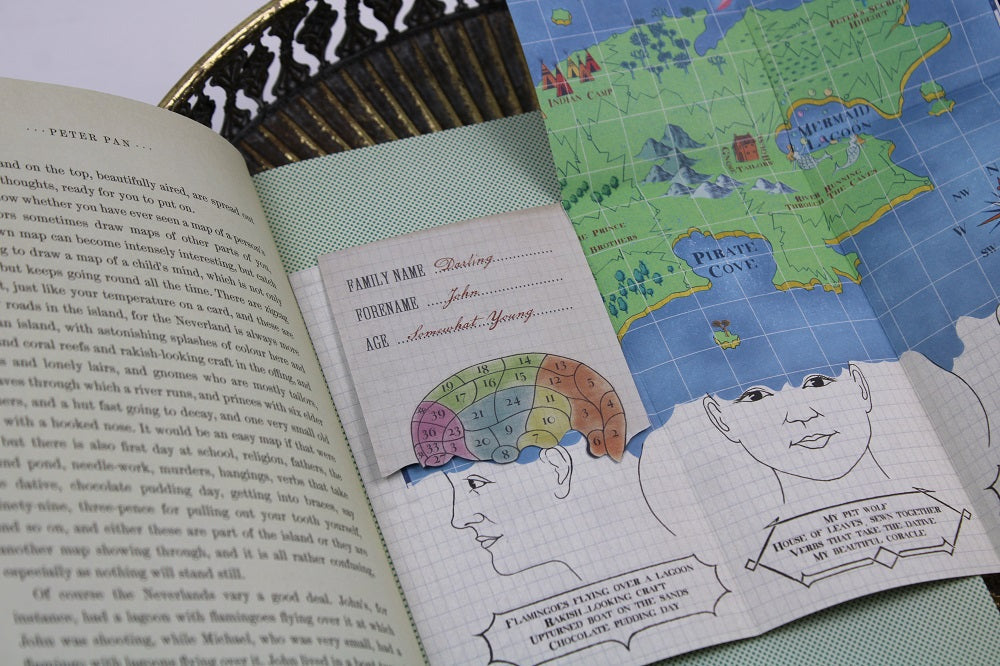 ... PETER PAN ...
and on the top, beautifully aired, are spread out
thoughts, ready for you to put on.
ow whether you have ever seen a map of a person's
ors sometimes draw maps of other parts of you,
wn map can become intensely interesting, but catch
g to draw a map of a child's mind, which is not only
but keeps going round all the time. There are zigzag
t, just like your temperature on a card, and these are
roads in the island, for the Neverland is always more
an island, with astonishing splashes of colour here and
nd coral reefs and rakish-looking craft in the offing, and
s and lonely lairs, and gnomes who are mostly tailors,
aves through which a river runs, and princes with six elder
hers, and a hut fast going to decay, and one very small old
with a hooked nose. It would be an easy map if that were
but there is also first day at school, religion, fathers, the
nd pond, needle-work, murders, hangings, verbs that take
e dative, chocolate pudding day, getting into braces, say
nety-nine, three-pence for pulling out your tooth yourself,
nd so on, and either these are part of the island or they are
another map showing through, and it is all rather confusing,
especially as nothing will stand still.
Of course the Neverlands vary a good deal. John's, for
instance, had a lagoon with flamingoes flying over it at which
John was shooting, while Michael, who was very small, had a
flamingo with lagoons flying over it. John lived in a boat
FAMILY NAME Darling
FORENAME John
AGE Somewhat Young
18 14 13
19 16 15 12 5
17 11 4
39 21 24 3
36 23 9 10 2
33 3 20 7 6
2 8
FLAMINGOES FLYING OVER A LAGOON
RAKISH-LOOKING CRAFT
UPTURNED BOAT ON THE SANDS
CHOCOLATE PUDDING DAY
PETER'S SECRET
HIDEOUT
INDIAN CAMP
MERMAID
LAGOON
GNOME TAILORS
RIVER RUNNING
THROUGH THE CAVES
THE PRINCE
BROTHERS
PIRATE
COVE
NW
W
SW
MY PET WOLF
HOUSE OF LEAVES, SEWN TOGETHER
VERBS THAT TAKE THE DATIVE
MY BEAUTIFUL CORACLE